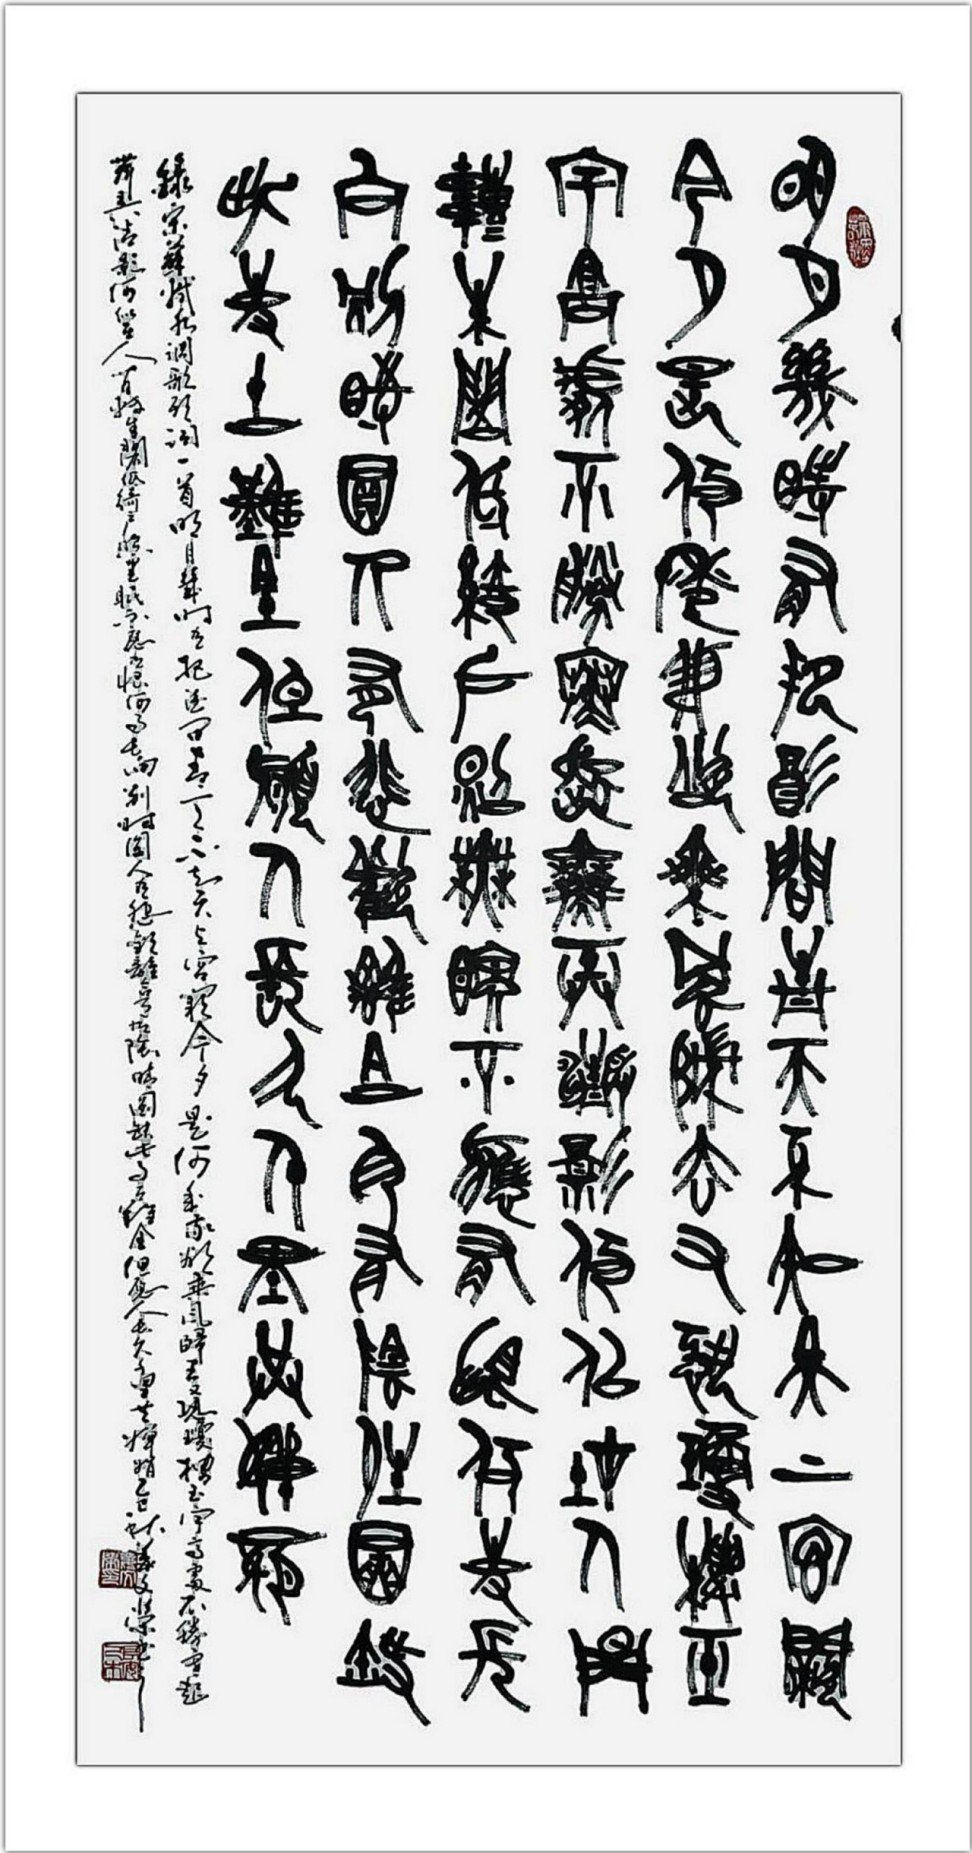 明月幾時有把酒問青天不知天上宮闕
今夕是何年我欲乘風歸去又恐瓊樓玉
宇高處不勝寒起舞弄清影何似在人間
轉朱閣低綺戶照無眠不應有恨何事長
向別時圓人有悲歡離合月有陰晴圓缺
此事古難全但願人長久千里共嬋娟
錄宋蘇軾水調歌頭詞一首明月幾時有把酒問青天不知天上宮闕今夕是何年我欲乘風歸去又恐瓊樓玉宇高處不勝寒起
舞弄清影何似在人間轉朱閣低綺戶照無眠不應有恨何事長向別時圓人有悲歡離合月有陰晴圓缺此事古難全但願人長久千里共嬋娟乙巳秋